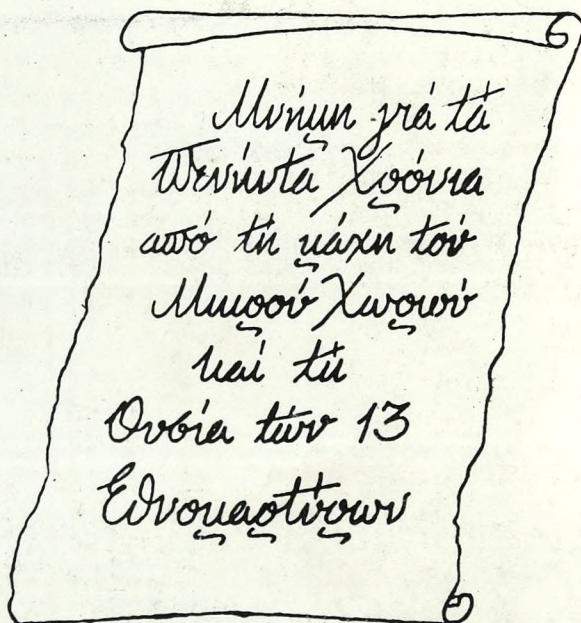 Μνήμη γιά τά
Πενήντα Χρόνια
από τή μάχη τού
Μικρού Χωριού
καί τή
Θυσία τών 13
Εθνομαρτύρων